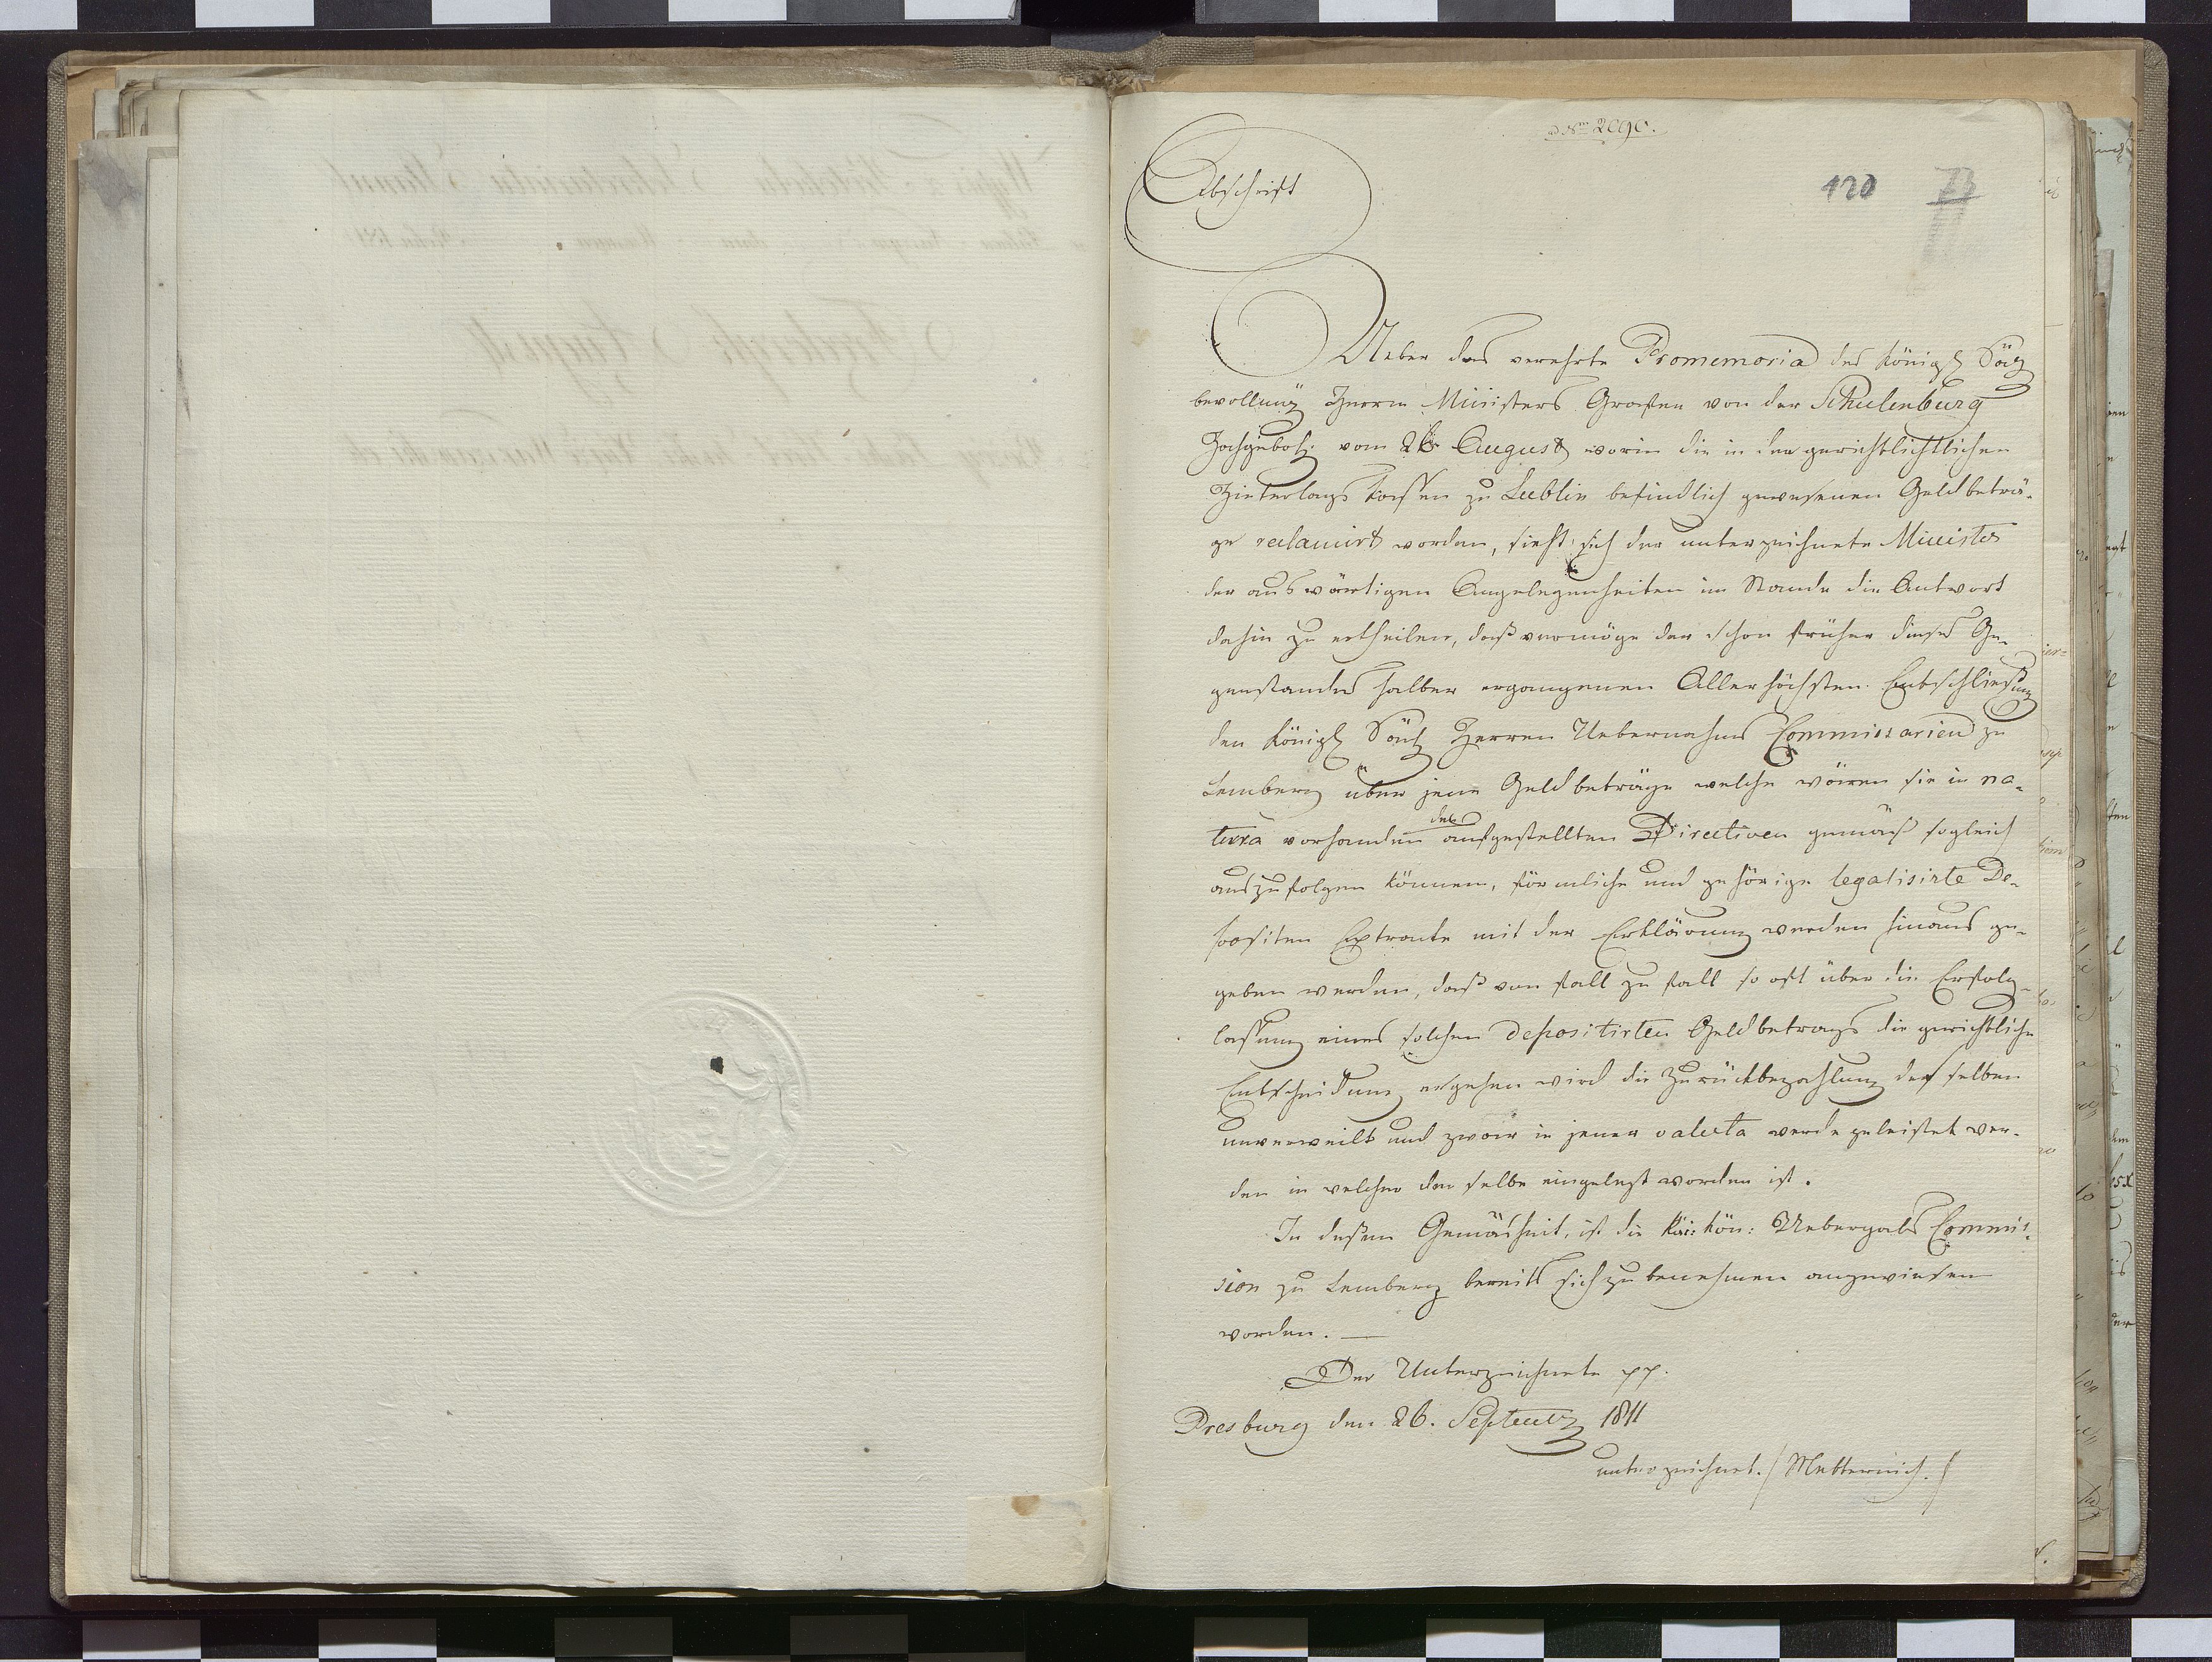 ad Nrm 2090.
Abschrift
120 73
Ueber das verehrte Promemoria des Königl Säch
bevollmäg Herrn Ministers Grafen von der Schulenburg
Hochgeboh vom 26. August worin die in den gerichtlichtlichen
Hinterlags Kassen zu Lublin befindlich gewesenen Geldbeträ-
ge reclamirt worden, sieht sich der unterzeichnete Minister
der auswärtigen Angelegenheiten im Stande die Antwort
dahin zu ertheilen, daß vermöge der schon früher dieses Ge-
genstandes halber ergangenen Allerhöchsten Entschließung
den Königl Säch Herren Uebernahms Commissarien zu
Lemberg über jene Geldbeträge welche wären sie in na-
tura vorhanden den aufgestellten Directiven gemäß sogleich
auszufolgen können, förmliche und gehörige legalisirte De-
positen Extracte mit der Erklärung werden hinaus ge-
geben werden, daß von fall zu fall so oft über die Erfolg-
lassung eines solchen depositirten Geldbetrags die gerichtliche
Entscheidung ergehen wird die Zurückbezahlung desselben
unverweilt und zwar in jener valuta werde geleistet wer-
den in welcher derselbe eingelegt worden ist.
In dessen Gemäsheit, ist die Kai: Kön: Uebergabs Commis-
sion zu Lemberg bereits sich zu benehmen angewiesen
worden. —
Der Unterzeichnete pp.
Presburg den 26. Septemb 1811
unterzeichnet. / Metternich. /